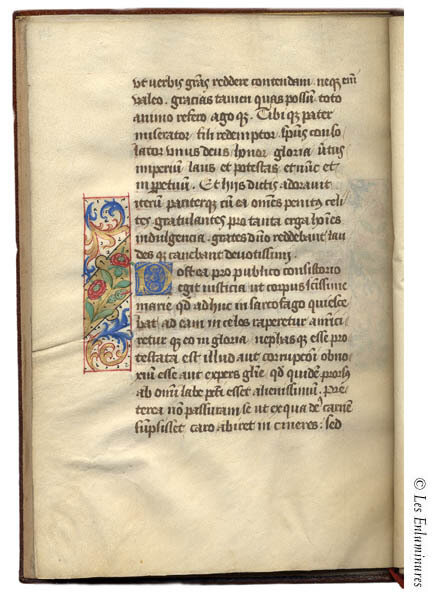 ut verbis grãs reddere contendam. neqꝫ em̃
valeo. gracias tamen quas possũ toto
animo refero ago qꝫ. Tibi qꝫ pater
miserator fili redemptor sp̃us conso
lator vnus deus honor gloria v̓tus
imperiũ laus et potestas et nũc et
in p̱petuũ. Et hijs dictis adorauit
iterũ pariterqꝫ cũ ea om̃es penitus celi
tes gratulantes pro tanta erga hoĩes
indulgencia. grates dño reddebant lau
des qꝫ canebant deuotissimi
Postera pro publico consistorio
egit iusticia ut corpus sc̃issime
marie qd̃ adhuc in sarcofago quiesce
bat ad eam in celos raperetur amici
retur qꝫ eo in gloria. nephas qꝫ esse pro
testata est illud aut corrupcõi obno
xiũ esse aut expers glĩe qd̃ quidẽ prorsꝰ
ab om̃i labe p̱cti esset alienissimũ. Pre
terea nõ passuram se ut ex qua deꝰ carnẽ
sũpsisset caro abiret in cineres. sed
© Les Enluminures